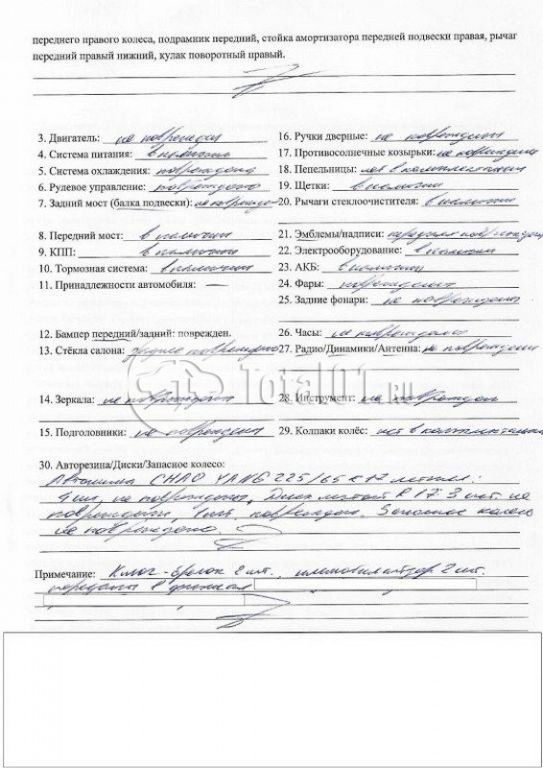 переднего правого колеса, подрамник передний, стойка амортизатора передней подвески правая, рычаг
передний правый нижний, кулак поворотный правый.
3. Двигатель: не поврежден
16. Ручки дверные: не повреждены
4. Система питания: в наличии
17. Противосолнечные козырьки: не повреждены
5. Система охлаждения: повреждена
18. Пепельницы: нет в комплектации
6. Рулевое управление: повреждено
19. Щетки: в наличии
7. Задний мост (балка подвески): не поврежде-
20. Рычаги стеклоочистителя: в наличии
8. Передний мост: в наличии
21. Эмблемы/надписи: передняя
9. КПП: в наличии
22. Электрооборудование: в наличии
10. Тормозная система: в наличии
23. АКБ: в наличии
11. Принадлежности автомобиля: —
24. Фары: повреждены
25. Задние фонари: не повреждены
12. Бампер передний/задний: поврежден.
26. Часы: не повреждены
13. Стёкла салона: заднее повреждено
27. Радио/Динамики/Антенна: не повреждены
Total01.ru
14. Зеркала: не повреждены
28. Инструмент: не поврежден
15. Подголовники: не повреждены
29. Колпаки колёс: нет в комплектации
30. Авторезина/Диски/Запасное колесо:
Автошина CHAO YANG 225/65 R17 летняя:
4 шт, не повреждены, Диск литой R17 3 шт. не
повреждены, 1 шт. поврежден. Запасное колесо
не повреждено
Примечание: Ключ-брелок 2 шт., иммобилайзер 2 шт.
переданы в